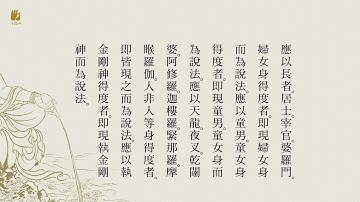 應以長者。居士宰官婆羅門。
婦女身得度者。即現婦女身
而為說法。應以童男童女身
得度者。即現童男。童女身而
為說法。應以天龍。夜叉。乾闥
婆。阿修羅。迦樓羅。緊那羅。摩
睺羅伽。人非人等身得度者。
即皆現之而為說法。應以執
金剛神得度者。即現執金剛
神而為說法。